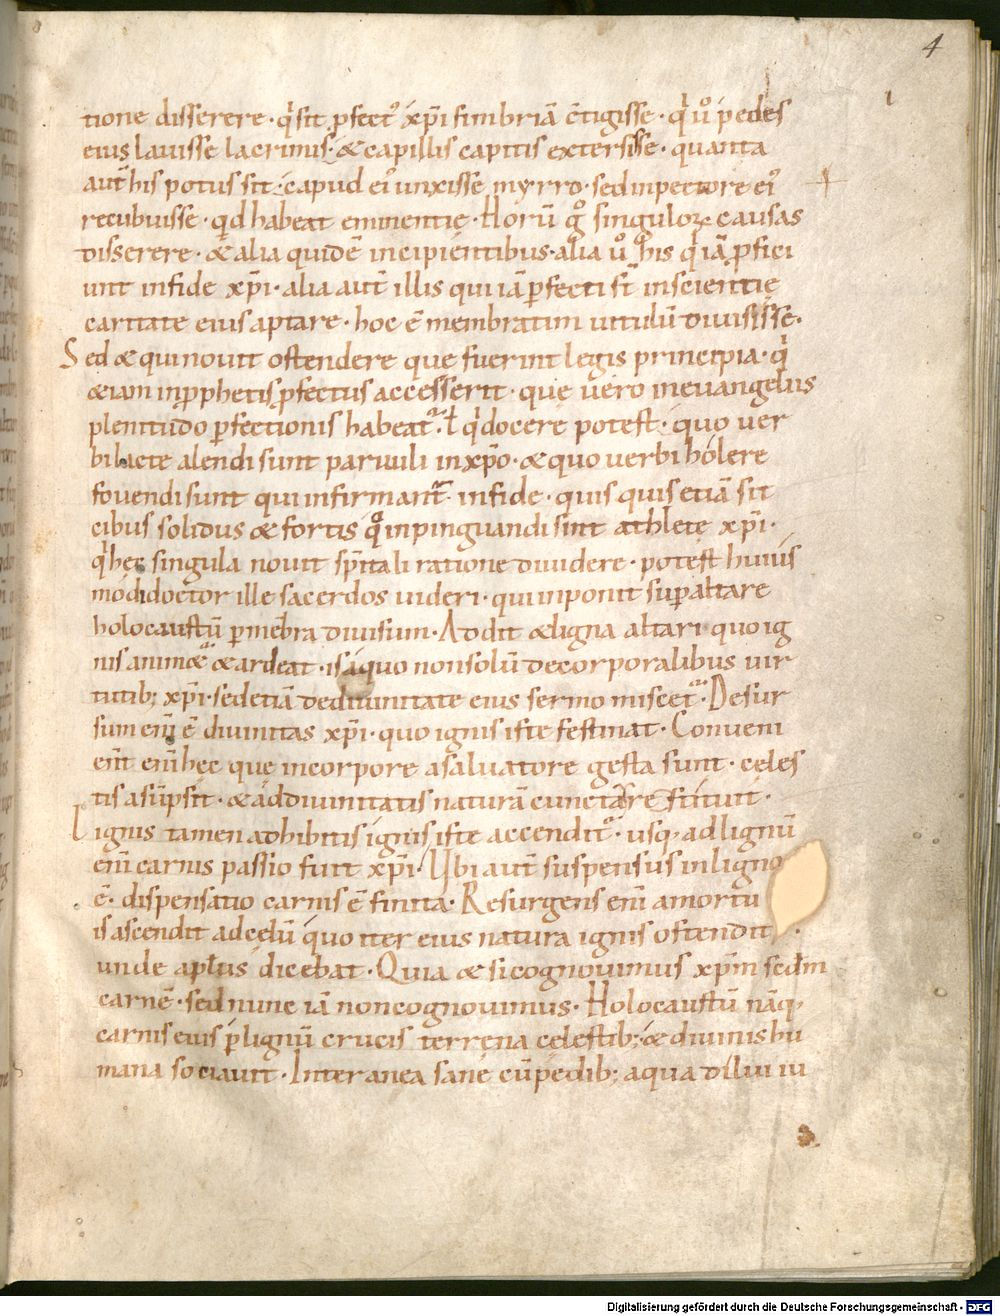 4
tione disserere · qͥ sit ꝓfectꝰ xp̄i fimbriā c̄tigisse · qͥ uͦ pedes
eius lauisse lacrimis · & capillis capitis extersisse · quanta
aut̄ his potus sit · capud eiꝰ unxisse myrro · sed inpectore eiꝰ
recubuisse · qd habeat eminentię · Horū gͦ singuloꝝ causas
disserere · & alia quidē incipientibus · alia uͦ his qͥ iā ꝓfici
unt infide xp̄i · alia aut̄ illis qui iā ꝑfecti st̄ inscientię
caritate eius aptare · hoc ē membratim uitulū diuisisse ·
Sed & qui nouit ostendere que fuerint legis principia · qͥ
& iam inꝓphetis ꝓfectus accesserit · quę uero ineuangeliis
plenitudo ꝑfectionis habeat̄ · ł qͥ docere potest · quo uer
bi lacte alendi sunt paruuli inxp̄o · & quo uerbi holere
fouendi sunt qui infirmant̄ infide · quis quis etiā sit
cibus solidus & fortis qͦ inpinguandi sint athletę xp̄i ·
qͥ hec singula nouit sp̄itali ratione diuidere · potest huius
modi doctor ille sacerdos uideri · qui inponit suꝑ altare
holocaustū ꝑ mēbra diuisum · Addit & ligna altari quo ig
nis animæ & ardeat · is a quo nonsolū decorporalibus uir
tutib; xp̄i · sed etiā dediuinitate eius sermo miscet̄ · Desur
sum enī ē diuinitas xp̄i · quo ignis iste festinat · Conueni
ent enī hec que incorpore asaluatore gesta sunt · celes
tis asūpsit · & ad diuinitatis naturā cuncta restituit ·
Lignis tamen adhibitis ignis iste accendit̄ · usq; ad lignū
enī carnis passio fuit xp̄i · Ubi aut̄ suspensus inligno
ē · dispensatio carnis ē finita · Resurgens enī amortu
is ascendit adcelū quo iter eius natura ignis ostendit ·
unde apłus dicebat · Quia & sicognouimus xp̄m sedm
carnē · sed nunc iā noncognouimus · Holocaustū nāq;
carnis eius ꝑ lignū crucis terrena celestib; & diuinis hu
mana sociauit · Interanea sane cū pedib; aqua dilui iu
Digitalisierung gefördert durch die Deutsche Forschungsgemeinschaft · DFG